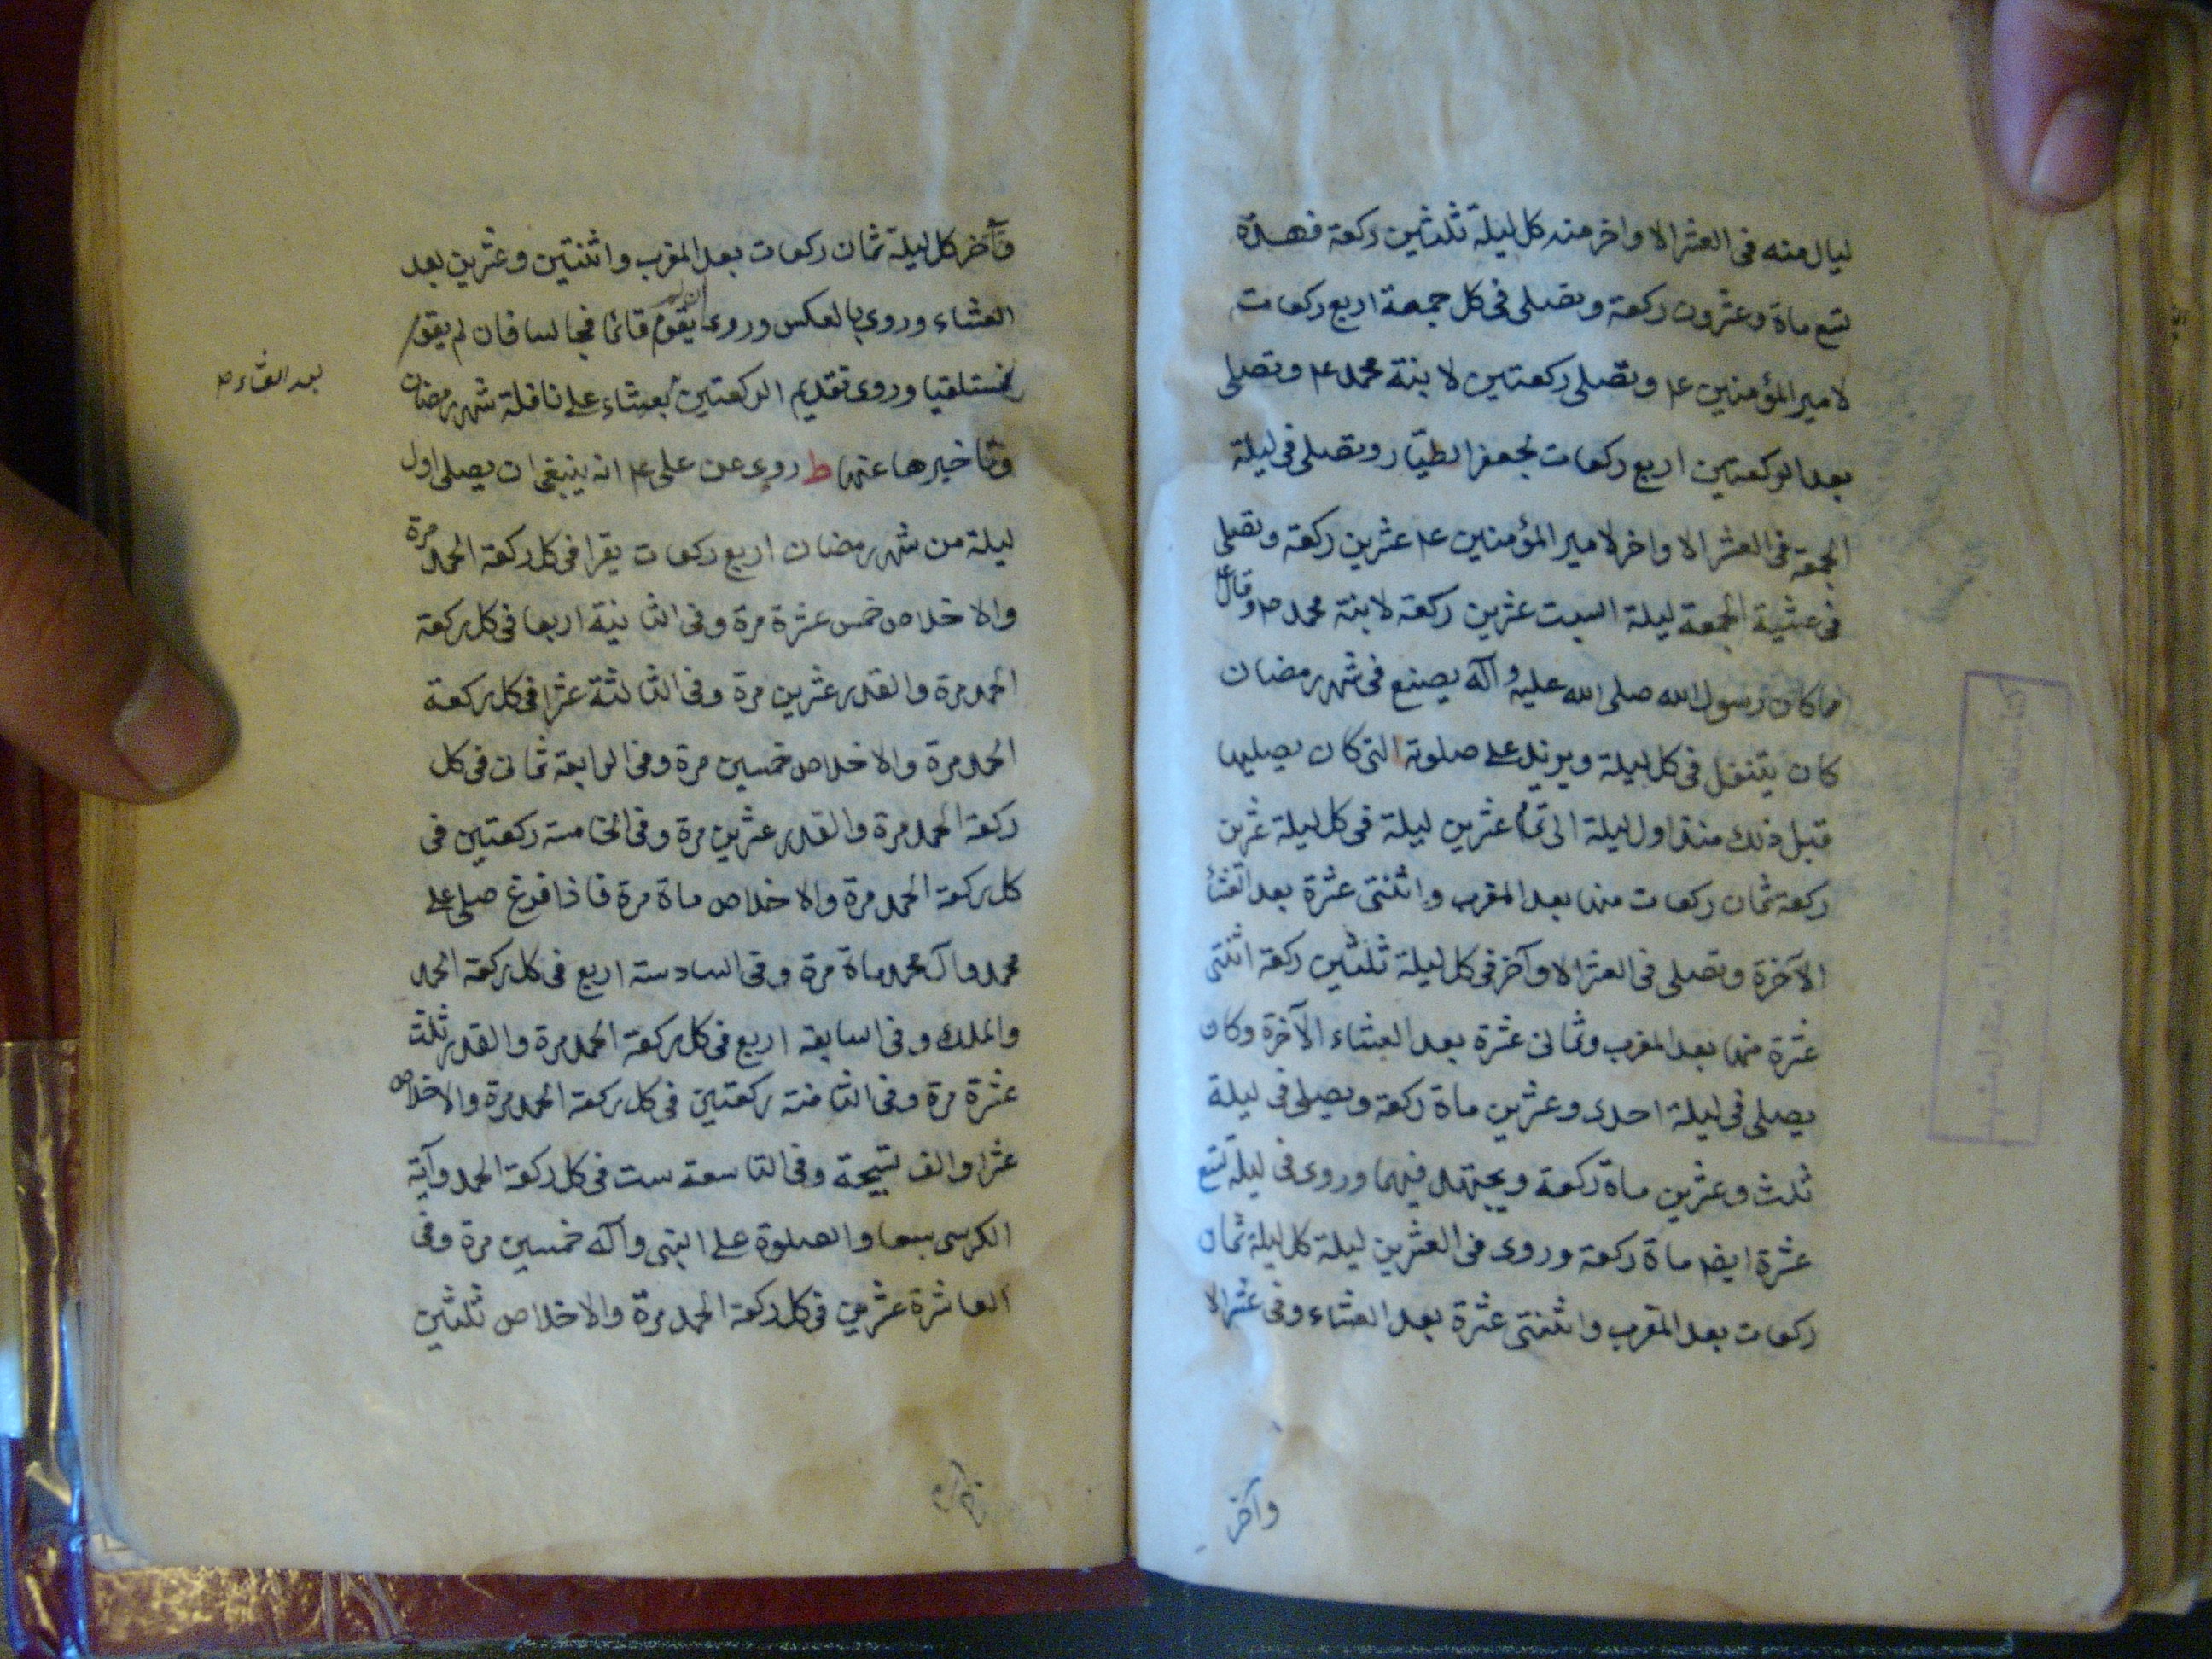 ليال منه في العشر الاواخر منه كل ليلة ثلثين ركعة فهذه
تسع ماة وعشرون ركعة وتصلى في كل جمعة اربع ركعات
لامير المؤمنين ع م وتصلى ركعتين لابنة محمد ع م وتصلى
بعد الركعتين اربع ركعات لجعفر الطيّار وتصلى في ليلة
الجمعة في العشر الاواخر لامير المؤمنين ع م عشرين ركعة وتصلى
في عشية الجمعة ليلة السبت عشرين ركعة لابنة محمد ص وقال ع
مما كان رسول الله صلى الله عليه وآله يصنع في شهر رمضان
كان يتنفل في كل ليلة ويزيد على صلوته التي كان يصليها
قبل ذلك منذ اول ليلة الى تمام عشرين ليلة في كل ليلة عشرين
ركعة ثمان ركعات منها بعد المغرب واثنتى عشرة بعد العشاء
الآخرة وتصلى في العشر الاوآخر في كل ليلة ثلثين ركعة اثنتى
عشرة منها بعد المغرب وثمانى عشرة بعد العشاء الآخرة وكان
يصلى في ليلة احدى وعشرين ماة ركعة ويصلى في ليلة
ثلث وعشرين ماة ركعة ويجتهد فيهما وروى في ليلة تسع
عشرة ايضا ماة ركعة وروى في العشرين ليلة كل ليلة ثمان
ركعات بعد المغرب واثنتى عشرة بعد العشاء وفي عشر الا
وآخر
وآخر كل ليلة ثمان ركعات بعد المغرب واثنتين وعشرين بعد
العشاء وروى بالعكس وروى يقوم قائما فجالسا فان لم يقو
فمستلقيا وروى تقديم الركعتين بعشاء على نافلة شهر رمضان
بعد العشاء ص
وتاخيرها عنها ط روى عن على ع م انه ينبغى ان يصلى اول
ليلة من شهر رمضان اربع ركعات يقرا في كل ركعة الحمد مرة
والاخلاص خمس عشرة مرة وفي الثانية اربعا في كل ركعة
الحمد مرة والقدر عشرين مرة وفي الثالثة عشرا في كل ركعة
الحمد مرة والاخلاص خمسين مرة وفي الرابعة ثمانى في كل
ركعة الحمد مرة والقدر عشرين مرة وفي الخامسة ركعتين في
كل ركعة الحمد مرة والاخلاص ماة مرة فاذا فرغ صلى على
محمد وآل محمد ماة مرة وفي السادسة اربع في كل ركعة الحمد
والملك وفي السابعة اربع في كل ركعة الحمد مرة والقدر ثلث
عشرة مرة وفي الثامنة ركعتين في كل ركعة الحمد مرة والاخلاص
عشرا والف تسبيحة وفي التاسعة ست في كل ركعة الحمد وآية
الكرسى سبعا والصلوة على النبى وآله خمسين مرة وفي
العاشرة عشرين في كل ركعة الحمد مرة والاخلاص ثلثين